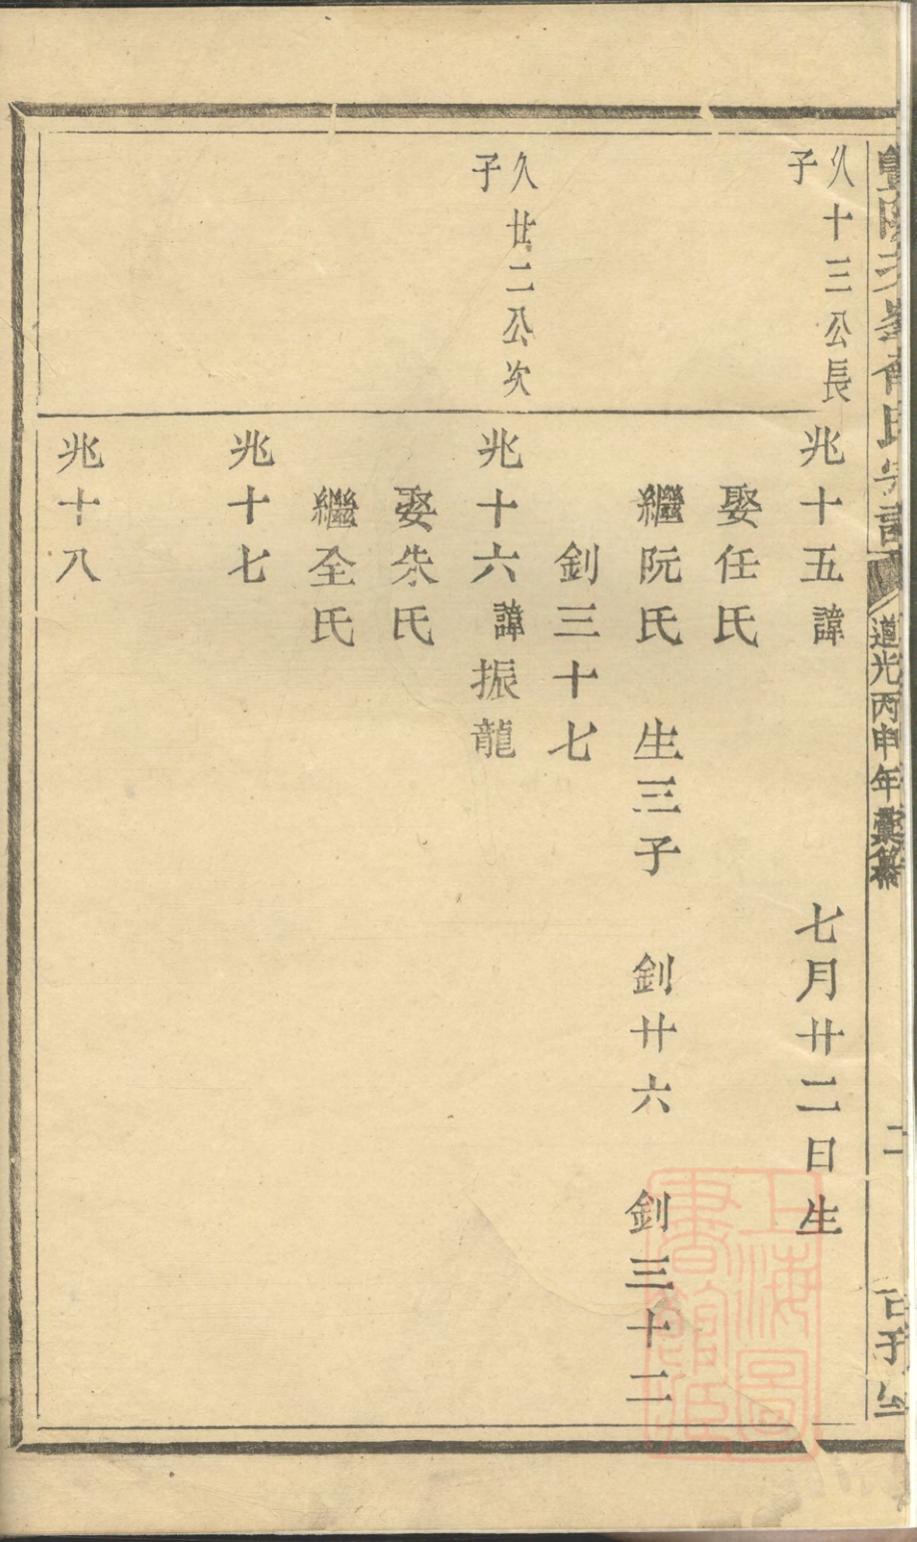 久十三公長
子
兆十五諱 七月廿二日生
娶任氏
繼阮氏 生三子 釗廿六 釗三十二
釗三十七
久廿二公次
子
兆十六諱振龍
娶朱氏
繼全氏
兆十七
兆十八
道光丙申年彙纂
二
上海圖
書館藏